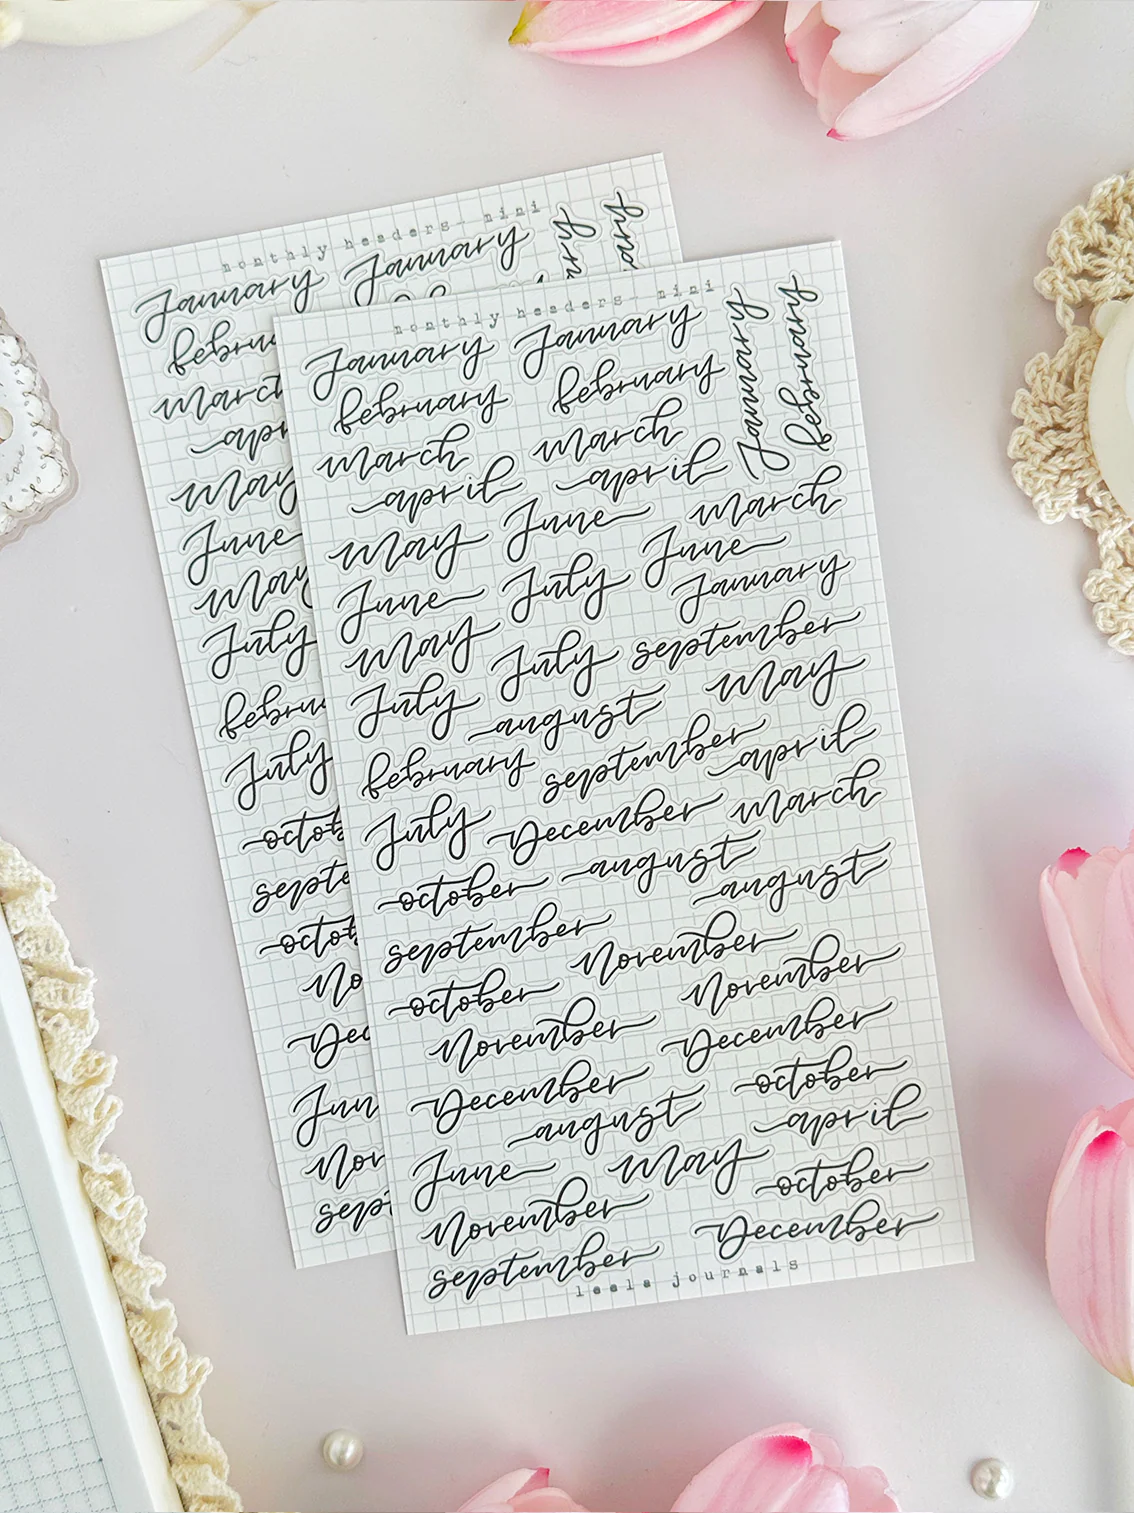 monthly headers - mini
January January
february
march
april
may
June
may
July
february
July
monthly headers - mini
January January January february
february february
march march
april april march
may June June
June July January
may July september
July august may
february september april
July December march
october august august
september November
october November
November December
December october
august april
June may october
November December
september
leela journals